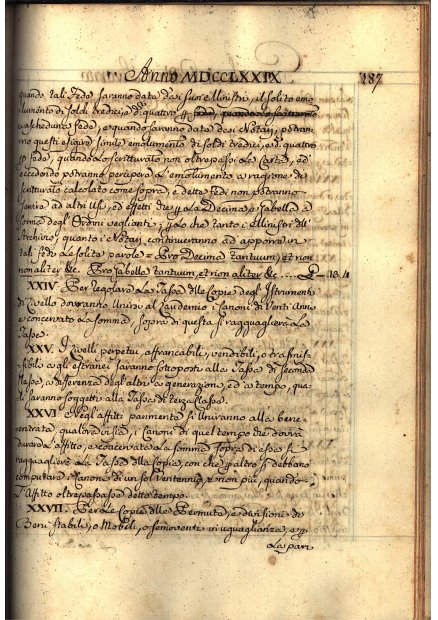 Anno MDCCLXXIX 187
quando tali Fedi saranno date dai suoi Ministri, il solito emo-
lumento di soldi tredici, e d. quattro p
ciascheduna Fede, e quando saranno date dai Notari, potran-
no questi esigere simile emolumento di soldi tredici, e d. quattro
p fede, quando lo scritturato non oltrepassi la Carta, ed
eccedendo potranno percipere l'emolumento a ragione di
scritturato calcolato come sopra, e dette fedi non potranno
servire ad altri usi, ed effetti che p la Decima, e Gabella a
forma degli Ordini veglianti; p lo che tanto i Ministri dell'
Archivio, quanto i Notari continueranno ad apporre in
tali fedi le solite parole = Pro Decima tantum, et non
non aliter &c. Pro Gabella tantum, et non aliter &c. .... £ — 13. 4
XXIV. Per regolare la Tassa delle Copie degli Istrumenti
di Livello dovranno Unirsi al Laudemio i Canoni di Venti Anni
e concervato la somma, sopra di questa si ragguaglierà la
Tassa.
XXV. I Livelli perpetui, affrancabili, vendibili, o trasmis-
sibili agli estranei saranno sottoposti alla Tassa di seconda
Classe, a differenza degli altri a generazione, ed a tempo, qua-
li saranno soggetti alla Tassa di terza Classe.
XXVI. Negli affitti parimente si Uniranno alla bene-
entrata, qualora vi sia, i Canoni di quel tempo che dovrà
durare l'affitto, e concervata la somma sopra di essa si
ragguaglierà la Tassa della Copia, con che p altro si debbano
computare i Canoni di un sol Ventennio, e non più, quando
l'Affitto oltrepassasse detto tempo.
XXVII. Per le Copie delle Permute, e divisioni di
Beni stabili, o Mobili, o semoventi in uguaglianza, e p
la pari